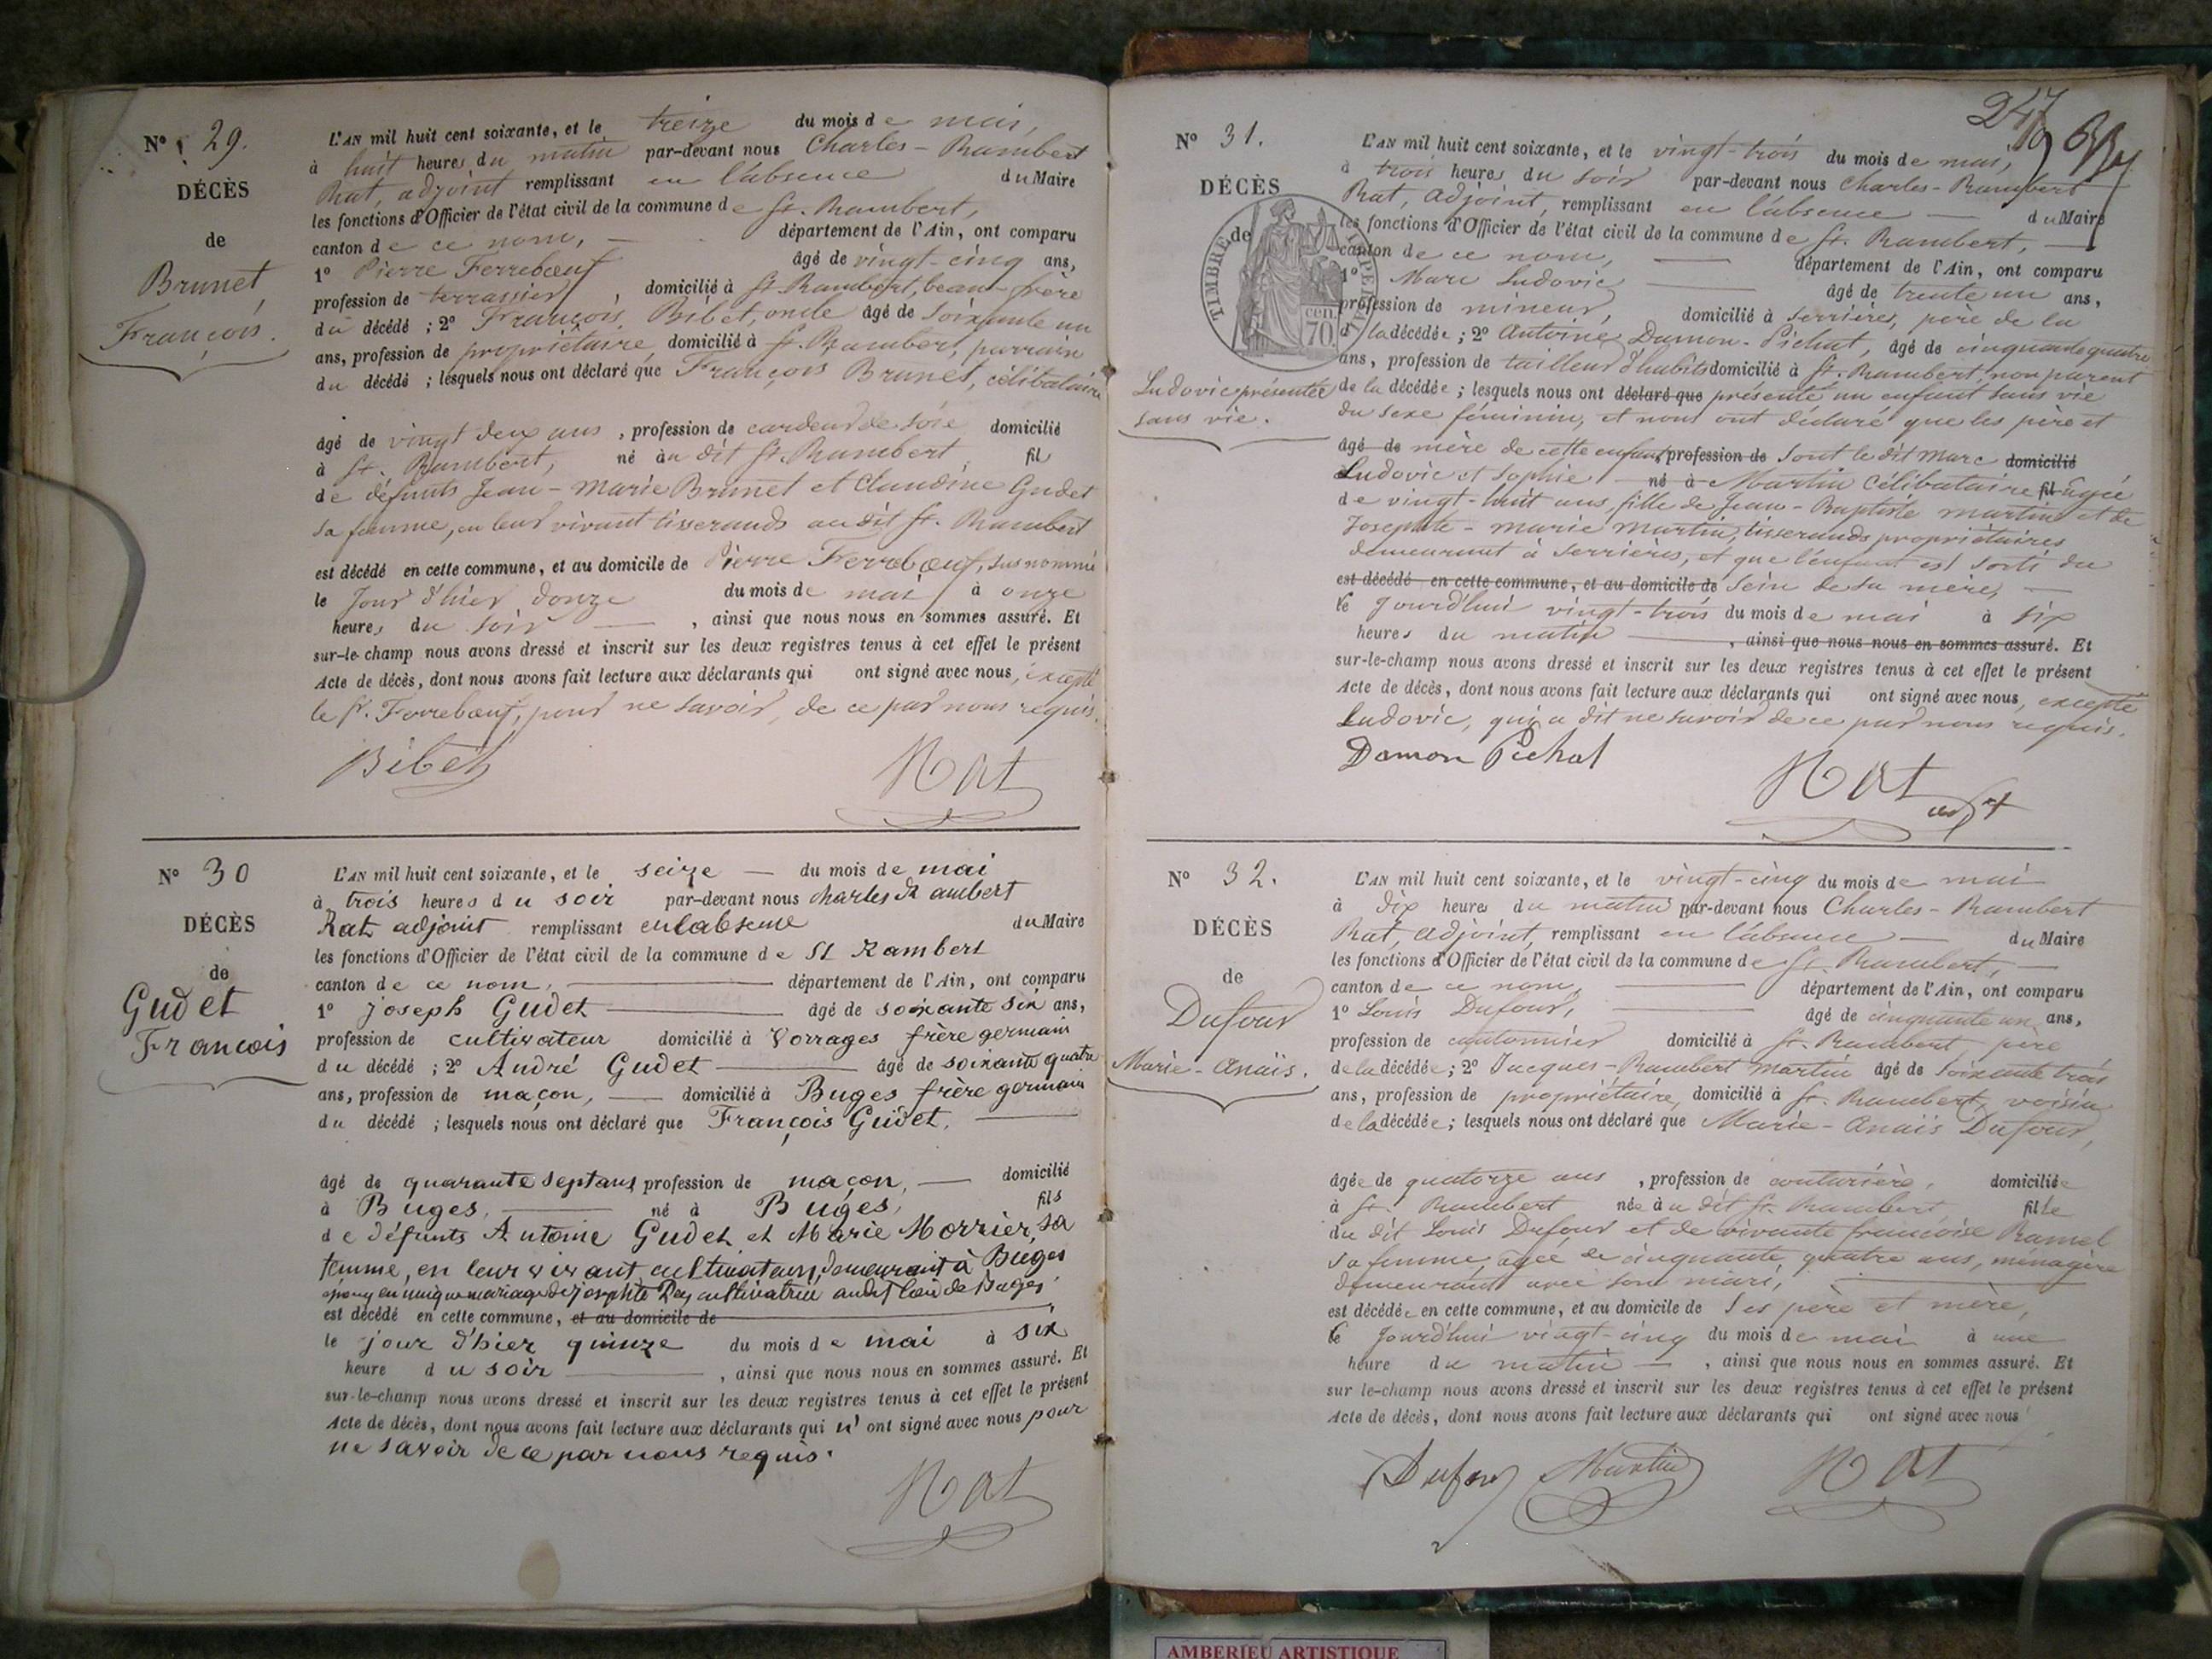 N° 29.
DÉCÈS
de
Brunet
François.
L'AN mil huit cent soixante, et le treize du mois de mai,
à huit heures du matin par-devant nous Charles-Rambert
Rat, adjoint remplissant en l'absence du Maire
les fonctions d'Officier de l'état civil de la commune de St. Rambert,
canton de ce nom, département de l'Ain, ont comparu
1° Pierre Ferrebœuf âgé de vingt-cinq ans,
profession de terrassier, domicilié à St. Rambert, beau-frère
du décédé ; 2° François Bibet, oncle âgé de soixante un
ans, profession de propriétaire domicilié à St. Rambert, parrain
du décédé ; lesquels nous ont déclaré que François Brunet, célibataire
âgé de vingt deux ans, profession de cardeur de soie domicilié
à St. Rambert, né au dit St. Rambert fils
de défunts Jean-Marie Brunet et Claudine Gudet
sa femme, en leur vivant tisserands au dit St. Rambert
est décédé en cette commune, et au domicile de Pierre Ferrebœuf, susnommé
le jour d'hier douze du mois de mai à onze
heures du soir, ainsi que nous nous en sommes assuré. Et
sur-le-champ nous avons dressé et inscrit sur les deux registres tenus à cet effet le présent
Acte de décès, dont nous avons fait lecture aux déclarants qui ont signé avec nous, excepté
le Sr. Ferrebœuf, pour ne savoir, de ce par nous requis.
Bibet Rat
N° 30
DÉCÈS
de
Gudet
Francois
L'AN mil huit cent soixante, et le seize du mois de mai
à trois heures du soir par-devant nous Charles Rambert
Rat adjoint remplissant en labsence du Maire
les fonctions d'Officier de l'état civil de la commune de St Rambert
canton de ce nom, département de l'Ain, ont comparu
1° Joseph Gudet âgé de soixante six ans,
profession de cultivateur domicilié à Vorrages frère germain
du décédé ; 2° André Gudet âgé de soixante quatre
ans, profession de maçon, domicilié à Buges frère germain
du décédé ; lesquels nous ont déclaré que François Gudet,
âgé de quarante sept ans, profession de maçon, domicilié
à Buges, né à Buges, fils
de défunts Antoine Gudet et Marie Morrier, sa
femme, en leur vivant cultivateurs, demeurant à Buges
époux en unique mariage de josephte Rey cultivatrice audit lieu de Buges
est décédé en cette commune, et au domicile de
le jour d'hier quinze du mois de mai à six
heure du soir, ainsi que nous nous en sommes assuré. Et
sur-le-champ nous avons dressé et inscrit sur les deux registres tenus à cet effet le présent
Acte de décès, dont nous avons fait lecture aux déclarants qui n'ont signé avec nous pour
ne savoir de ce par nous requis.
Rat
247
N° 31.
DÉCÈS
de
TIMBRE IMPERIAL
70 cen.
Ludovic présentée
sans vie.
L'AN mil huit cent soixante, et le vingt-trois du mois de mai,
à trois heures du soir par-devant nous Charles-Rambert
Rat, adjoint, remplissant en l'absence du Maire
les fonctions d'Officier de l'état civil de la commune de St. Rambert,
canton de ce nom, département de l'Ain, ont comparu
1° Marc Ludovic âgé de trente un ans,
profession de mineur, domicilié à Serrières, père de la
d ladécédée ; 2° Antoine Damon-Pichat, âgé de cinquante quatre
ans, profession de tailleur d'habits domicilié à St. Rambert, non parent
de la décédée ; lesquels nous ont déclaré que présenté un enfant sans vie
du sexe féminin, et nous ont déclaré que les père et
âgé de mère de cette enfant, profession de sont le dit Marc domicilié
Ludovic et Sophie né à Martin célibataire fil âgée
de vingt-huit ans, fille de Jean-Baptiste Martin et de
Josephte-Marie Martin, tisserands propriétaires
demeurant à Serrières, et que l'enfant est sorti du
est décédé en cette commune, et au domicile de sein de sa mère,
le jourd'hui vingt-trois du mois de mai à six
heures du matin, ainsi que nous nous en sommes assuré. Et
sur-le-champ nous avons dressé et inscrit sur les deux registres tenus à cet effet le présent
Acte de décès, dont nous avons fait lecture aux déclarants qui ont signé avec nous, excepté
Ludovic, qui a dit ne savoir de ce par nous requis.
Damon Pichat Rat
adjt
N° 32.
DÉCÈS
de
Dufour
Marie-Anaïs.
L'AN mil huit cent soixante, et le vingt-cinq du mois de mai
à dix heures du matin par-devant nous Charles-Rambert
Rat, adjoint, remplissant en l'absence du Maire
les fonctions d'Officier de l'état civil de la commune de St. Rambert,
canton de ce nom, département de l'Ain, ont comparu
1° Louis Dufour, âgé de cinquante un ans,
profession de cantonnier domicilié à St. Rambert père
de la décédée ; 2° Jacques-Rambert Martin âgé de soixante trois
ans, profession de propriétaire, domicilié à St. Rambert, voisin
de la décédée ; lesquels nous ont déclaré que Marie-Anaïs Dufour,
âgée de quatorze ans, profession de couturière, domiciliée
à St. Rambert née au dit St. Rambert fille
du dit Louis Dufour et de vivante françoise Ramel
sa femme, âgée de cinquante quatre ans, ménagère
demeurant avec son mari,
est décédée en cette commune, et au domicile de ses père et mère,
le jourd'hui vingt-cinq du mois de mai à une
heure du matin, ainsi que nous nous en sommes assuré. Et
sur le-champ nous avons dressé et inscrit sur les deux registres tenus à cet effet le présent
Acte de décès, dont nous avons fait lecture aux déclarants qui ont signé avec nous
Dufour Martin Rat
AMBERIEU ARTISTIQUE